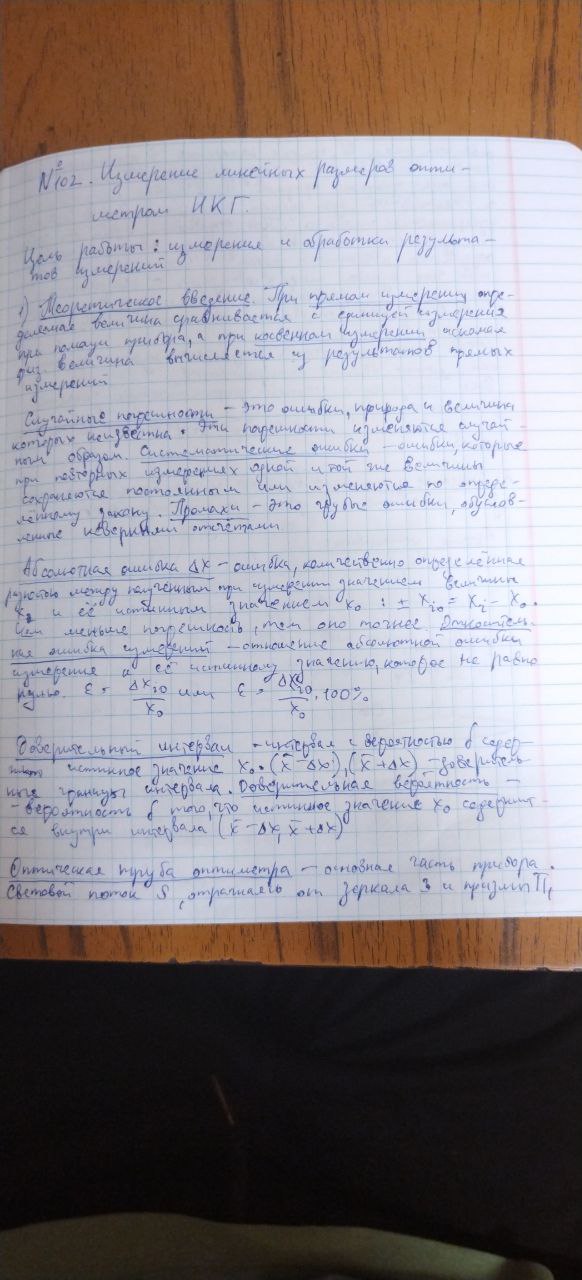 №102. Измерение линейных размеров опти-
метром ИКГ.
Цель работы: измерение и обработка результа-
тов измерений
1) Теоретическое введение. При прямом измерении опре-
деляемая величина сравнивается с единицей измерения
при помощи прибора, а при косвенном измерении искомая
физ. величина вычисляется из результатов прямых
измерений
Случайные погрешности – это ошибки, природа и величина
которых неизвестна. Эти погрешности изменяются случай-
ным образом. Систематические ошибки – ошибки, которые
при повторных измерениях одной и той же величины
сохраняются постоянным или изменяются по опреде-
лённому закону. Промахи – это грубые ошибки, обуслов-
ленные неверными отсчётами
Абсолютная ошибка ΔX – ошибка, количественно определённая
разностью между полученным при измерении значением величины
и её истинным значением x₀ : ± x_i0 = x_i – x₀.
Чем меньше погрешность, тем оно точнее Относитель-
ная ошибка измерений – отношение абсолютной ошибки
измерения к её истинному значению, которое не равно
нулю. ε = Δx_i0/x₀ или ε = Δx_i0/x₀ · 100%
Доверительный интервал – интервал с вероятностью δ содер-
истинное значение x₀. (x̄ – Δx), (x̄ + Δx) – доверитель-
ные границы интервала. Доверительная вероятность –
– вероятность δ того, что истинное значение x₀ содержит-
ся внутри интервала (x̄ – Δx, x̄ + Δx)
Оптическая труба оптиметра – основная часть прибора.
Световой поток S, отражаясь от зеркала 3 и призмы П₁